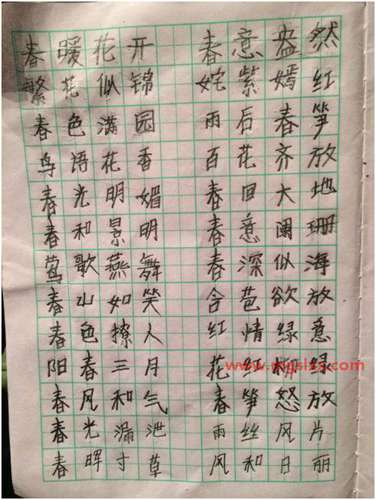 春暖花开 春意盎然
繁花似锦 姹紫嫣红
春色满园 雨后春笋
鸟语花香 百花齐放
春光明媚 春回大地
春和景明 春意阑珊
莺歌燕舞 春深似海
春山如笑 含苞欲放
春色撩人 红情绿意
阳春三月 花红柳绿
春风和气 春笋怒放
春光漏泄 雨丝风片
春晖寸草 风和日丽